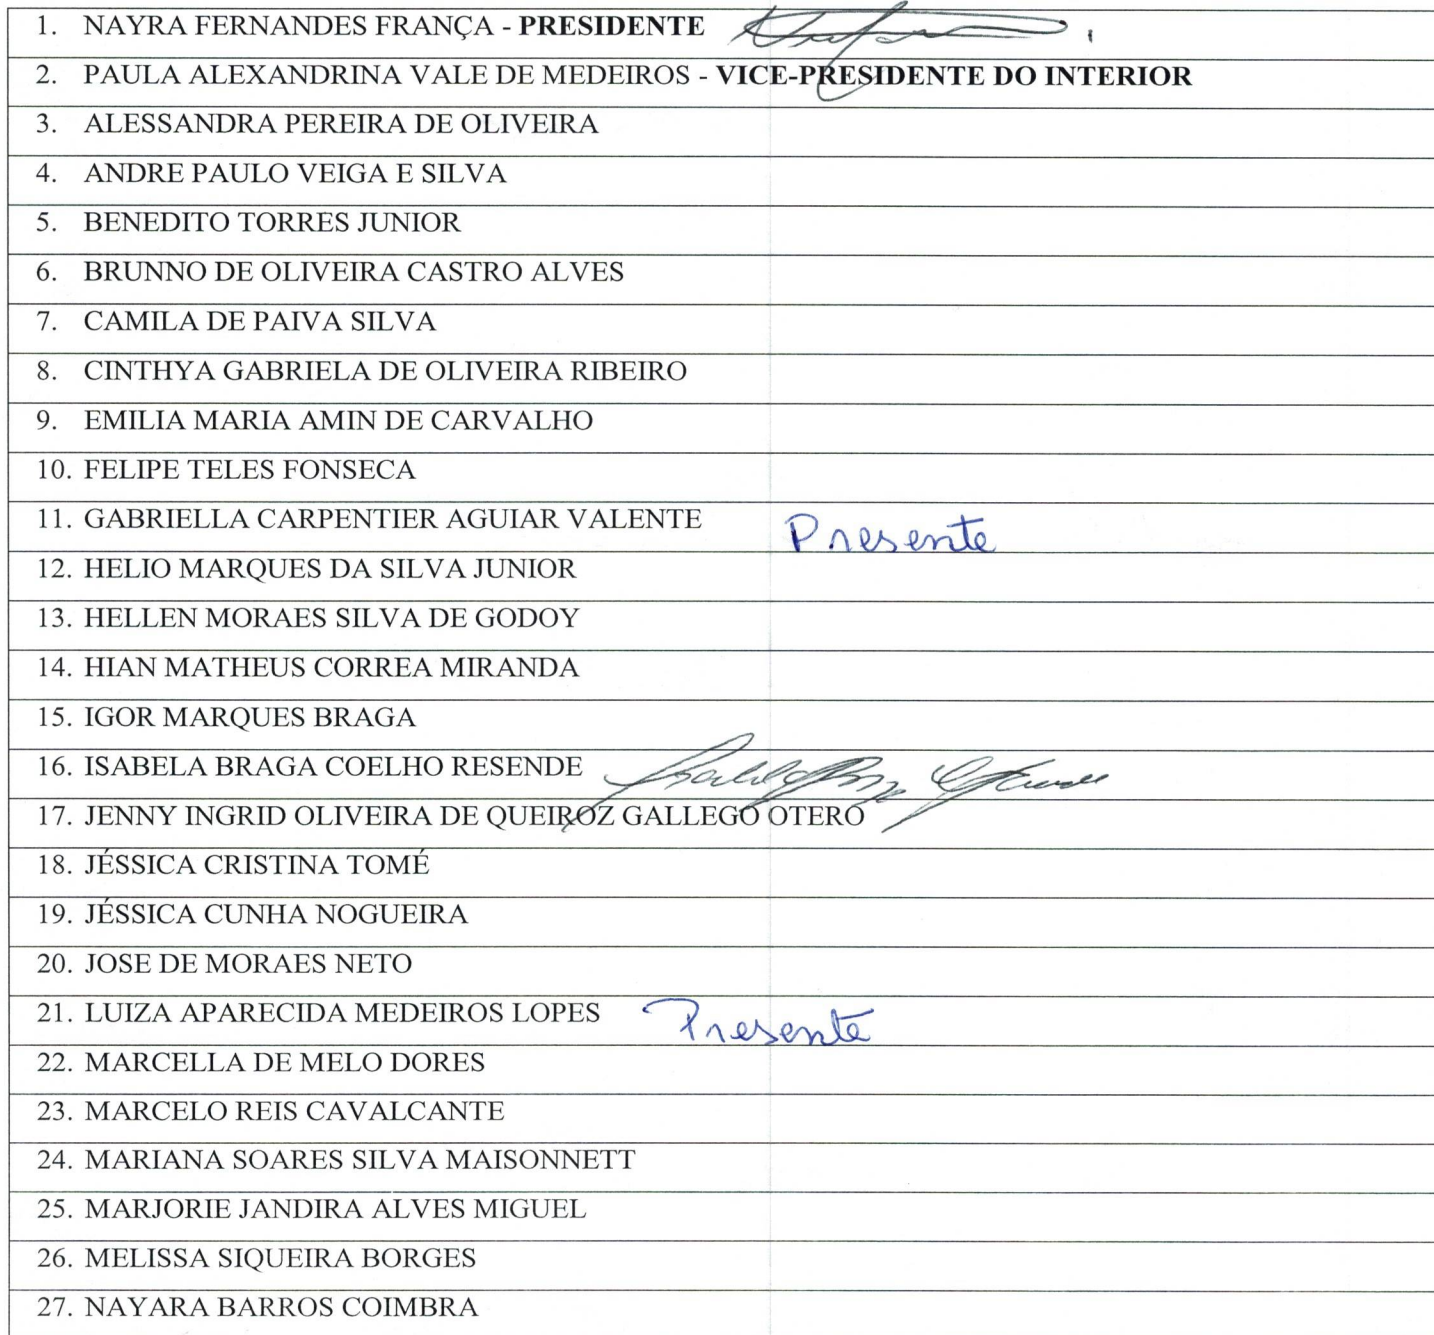 1. NAYRA FERNANDES FRANÇA - PRESIDENTE
2. PAULA ALEXANDRINA VALE DE MEDEIROS - VICE-PRESIDENTE DO INTERIOR
3. ALESSANDRA PEREIRA DE OLIVEIRA
4. ANDRE PAULO VEIGA E SILVA
5. BENEDITO TORRES JUNIOR
6. BRUNNO DE OLIVEIRA CASTRO ALVES
7. CAMILA DE PAIVA SILVA
8. CINTHYA GABRIELA DE OLIVEIRA RIBEIRO
9. EMILIA MARIA AMIN DE CARVALHO
10. FELIPE TELES FONSECA
11. GABRIELLA CARPENTIER AGUIAR VALENTE Presente
12. HELIO MARQUES DA SILVA JUNIOR
13. HELLEN MORAES SILVA DE GODOY
14. HIAN MATHEUS CORREA MIRANDA
15. IGOR MARQUES BRAGA
16. ISABELA BRAGA COELHO RESENDE
17. JENNY INGRID OLIVEIRA DE QUEIROZ GALLEGO OTERO
18. JÉSSICA CRISTINA TOMÉ
19. JÉSSICA CUNHA NOGUEIRA
20. JOSE DE MORAES NETO
21. LUIZA APARECIDA MEDEIROS LOPES Presente
22. MARCELLA DE MELO DORES
23. MARCELO REIS CAVALCANTE
24. MARIANA SOARES SILVA MAISONNETT
25. MARJORIE JANDIRA ALVES MIGUEL
26. MELISSA SIQUEIRA BORGES
27. NAYARA BARROS COIMBRA